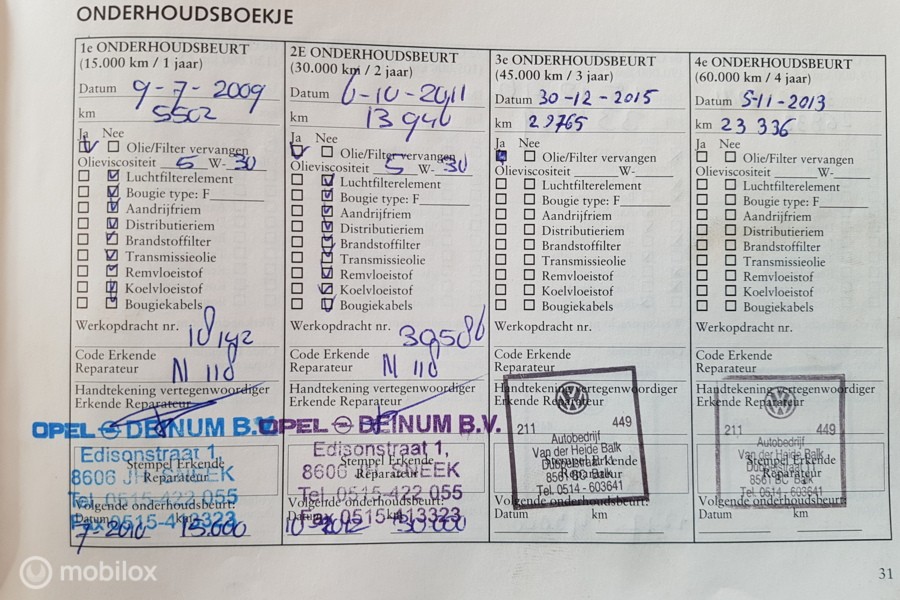 ONDERHOUDSBOEKJE
1e ONDERHOUDSBEURT
(15.000 km / 1 jaar)
Datum 9-7-2009
km 5502
Ja Nee
Olie/Filter vervangen
Olieviscositeit 5 W- 30
Luchtfilterelement
Bougie type: F
Aandrijfriem
Distributieriem
Brandstoffilter
Transmissieolie
Remvloeistof
Koelvloeistof
Bougiekabels
Werkopdracht nr.
Code Erkende
Reparateur N 118
Handtekening vertegenwoordiger
Erkende Reparateur
OPEL DEINUM B.V.
Edisonstraat 1,
Stempel Erkende
Reparateur
Tel. 0515-422 055
Volgende onderhoudsbeurt:
Datum km
7-2010 15.000
2E ONDERHOUDSBEURT
(30.000 km / 2 jaar)
Datum 6-10-2011
km 13 946
Ja Nee
Olie/Filter vervangen
Olieviscositeit 5 W- 30
Luchtfilterelement
Bougie type: F
Aandrijfriem
Distributieriem
Brandstoffilter
Transmissieolie
Remvloeistof
Koelvloeistof
Bougiekabels
Werkopdracht nr.
39586
Code Erkende
Reparateur N 118
Handtekening vertegenwoordiger
Erkende Reparateur
OPEL DEINUM B.V.
Edisonstraat 1,
Stempel Erkende
Reparateur
Tel. 0515-422 055
Volgende onderhoudsbeurt:
Fax 0515-413323
Datum km
10-2012 30.000
3e ONDERHOUDSBEURT
(45.000 km / 3 jaar)
Datum 30-12-2015
km 29765
Ja Nee
Olie/Filter vervangen
Olieviscositeit W-
Luchtfilterelement
Bougie type: F
Aandrijfriem
Distributieriem
Brandstoffilter
Transmissieolie
Remvloeistof
Koelvloeistof
Bougiekabels
Werkopdracht nr.
Code Erkende
Reparateur
Handtekening vertegenwoordiger
Erkende Reparateur
211 449
Autobedrijf
Van der Heide Balk
Stempel Erkende
Reparateur
8561 BC Balk
Tel. 0514 - 603641
Volgende onderhoudsbeurt:
Datum km
4e ONDERHOUDSBEURT
(60.000 km / 4 jaar)
Datum 5-11-2013
km 23 336
Ja Nee
Olie/Filter vervangen
Olieviscositeit W-
Luchtfilterelement
Bougie type: F
Aandrijfriem
Distributieriem
Brandstoffilter
Transmissieolie
Remvloeistof
Koelvloeistof
Bougiekabels
Werkopdracht nr.
Code Erkende
Reparateur
Handtekening vertegenwoordiger
Erkende Reparateur
211 449
Autobedrijf
Van der Heide Balk
Stempel Erkende
Reparateur
8561 BC Balk
Tel. 0514 - 603641
Volgende onderhoudsbeurt:
Datum km
31
mobilox